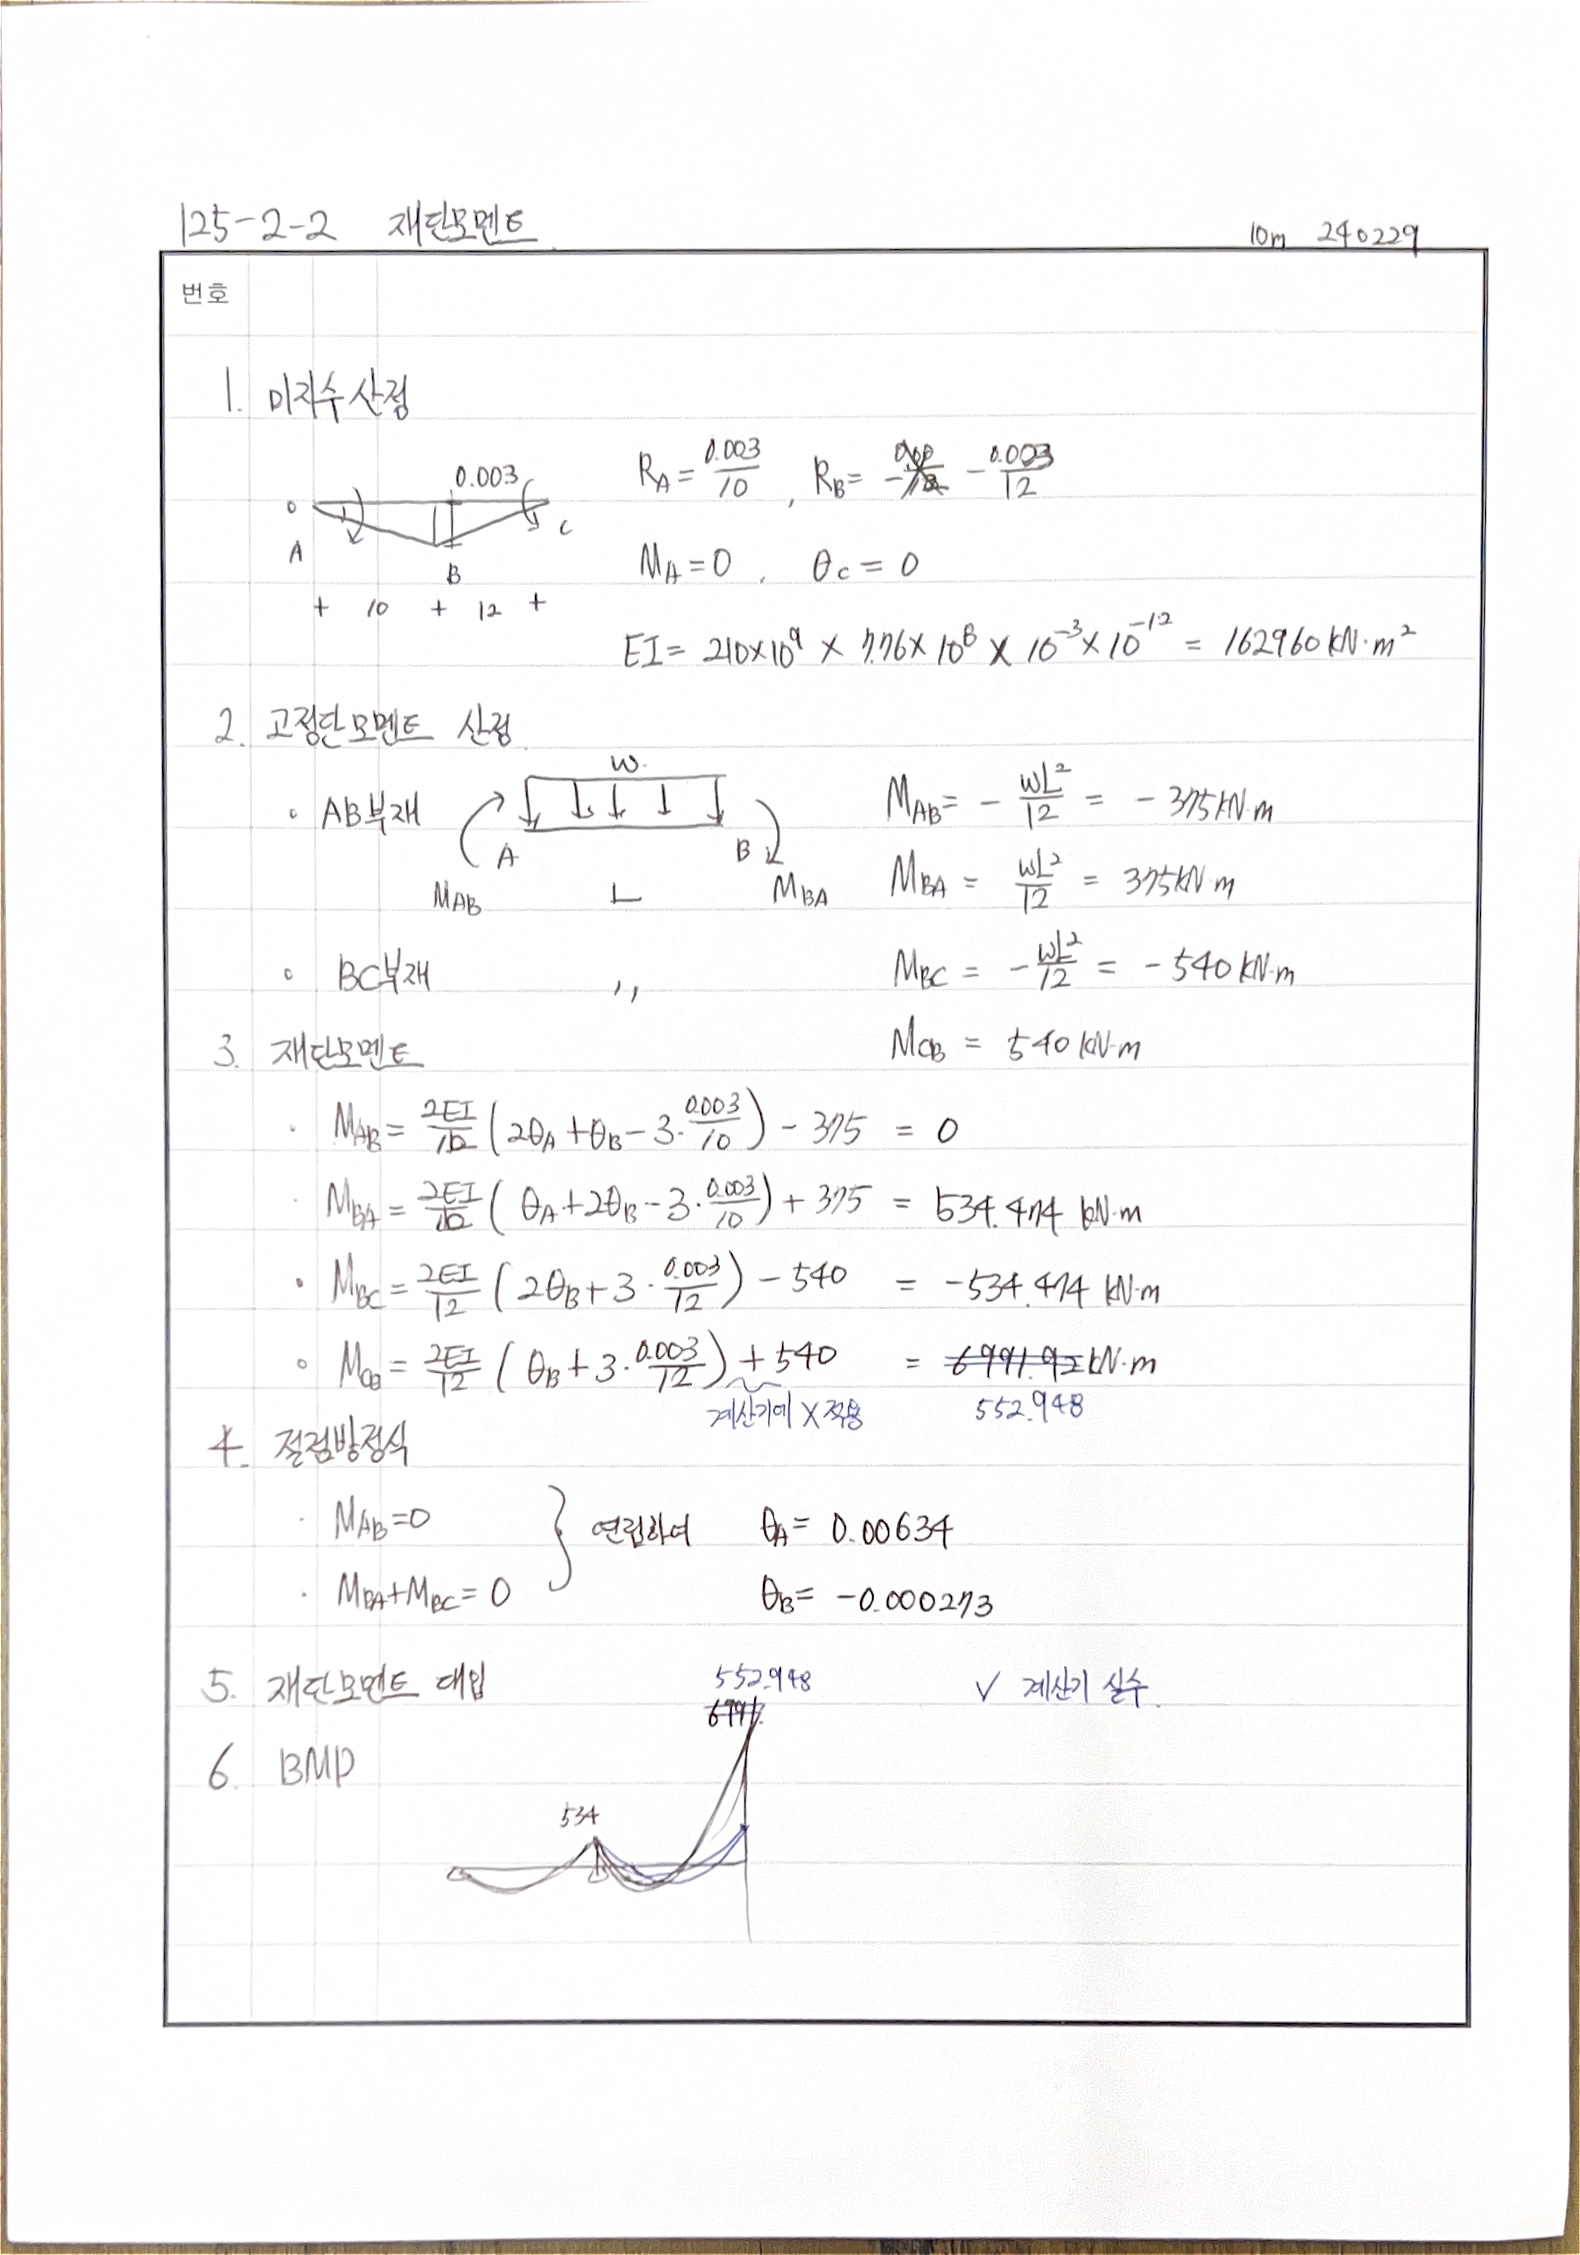 125-2-2 재단모멘트
10m 240229
번호
1. 미지수 산정
0.003
0 A B C
+ 10 + 12 +
R_A = 0.003/10 , R_B = - 0.003/12
M_A = 0 , θ_C = 0
EI = 210×10⁹ × 7.76×10⁸ × 10⁻³ × 10⁻¹² = 162960 kN·m²
2. 고정단모멘트 산정
◦ AB부재
w.
A B
M_AB L M_BA
M_AB = - wL²/12 = - 375kN·m
M_BA = wL²/12 = 375kN·m
◦ BC부재 〃 M_BC = - wL²/12 = - 540 kN·m
M_CB = 540 kN·m
3. 재단모멘트
· M_AB = 2EI/10 (2θ_A + θ_B - 3·0.003/10) - 375 = 0
· M_BA = 2EI/10 (θ_A + 2θ_B - 3·0.003/10) + 375 = 534.474 kN·m
· M_BC = 2EI/12 (2θ_B + 3·0.003/12) - 540 = -534.474 kN·m
◦ M_CB = 2EI/12 (θ_B + 3·0.003/12) + 540 = 6991.92 kN·m
계산기에 X 적용 552.948
4. 절점방정식
· M_AB = 0
· M_BA + M_BC = 0
} 연립하여
θ_A = 0.00634
θ_B = -0.000273
5. 재단모멘트 대입
552.948
6991.
√ 계산기 실수.
6. BMD
534